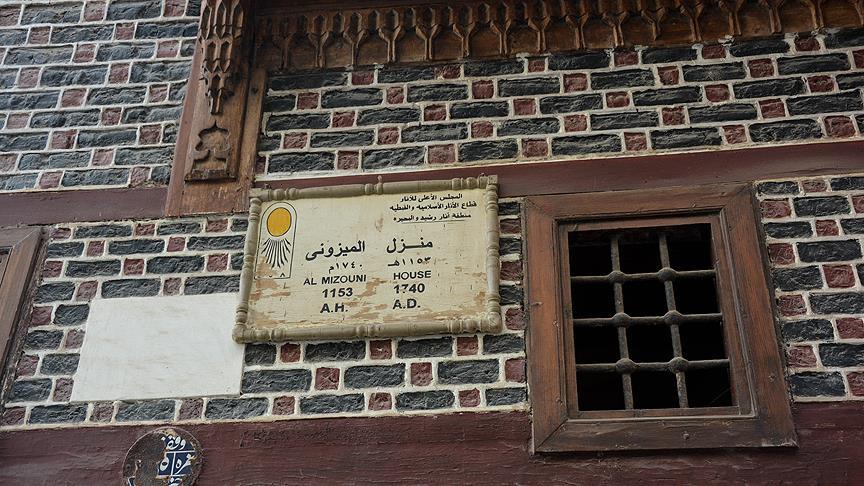 المجلس الأعلى للآثار
قطاع الآثار الأسلاميه والقبطيه
منطقة آثار رشيد والبحيره
منزل الميزونى
١١٥٣هـ ١٧٤٠م
AL MIZOUNI HOUSE
1153 1740
A.H. A.D.
وقف